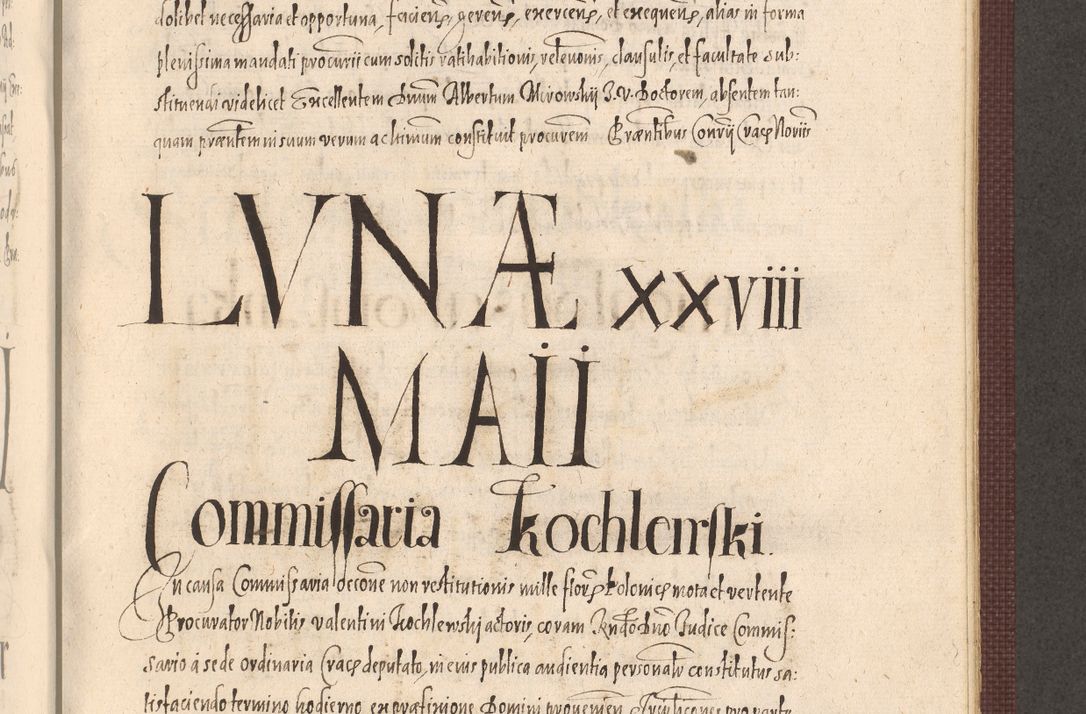 dolibet necessaria et opportuna, facienꝝ, gerenꝝ, exercenꝝ, et exequenꝝ, alias in forma
plenissima mandati procurii cum solitis ratihabitionis, relevonis, clausulis, et facultate sub:
stituendi videlicet Excellentem Dnum Albertum Mirowskij J. V. Doctorem, absentem tan:
quam prntem in suum verum ac ltimum constituit procurem Præntibus Conrij Cracꝝ Noriis
LVNÆ xxviii
MAii
Commissaria Kochlewski.
In causa Commissaria occone non restitutionis mille florꝝ Polonicꝝ mota et vertente
Procurator Nobilis Valentini Kochlewski actoris, coram Rndo Dno Iudice Commis:
sario à sede ordinaria Cracꝝ deputato, in eius publica audientia personalr constitutus sa:
tisfaciendo termino hodierno ex præfixione Domini provenien pro parte